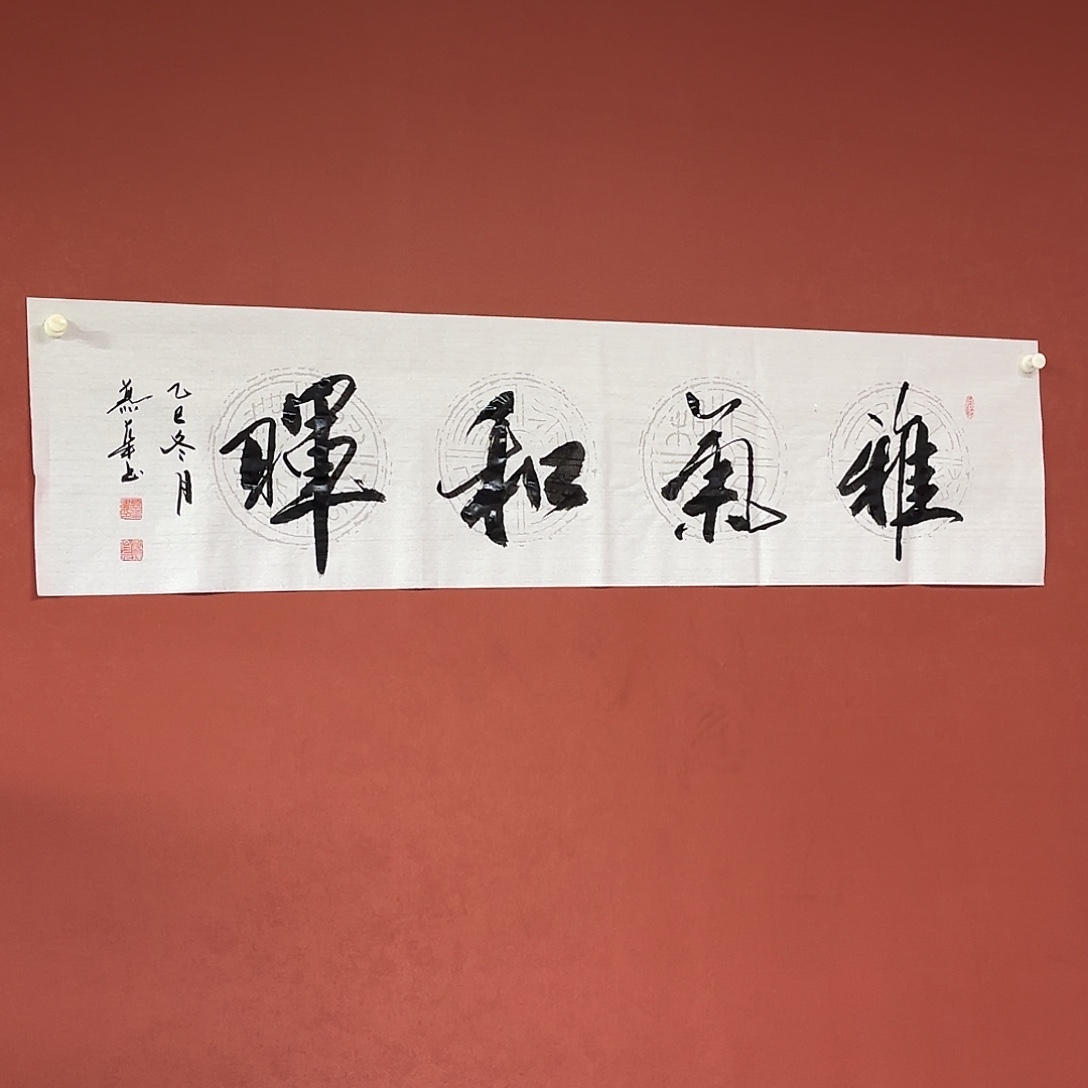 雅氣和暉
乙巳冬月
燕華书